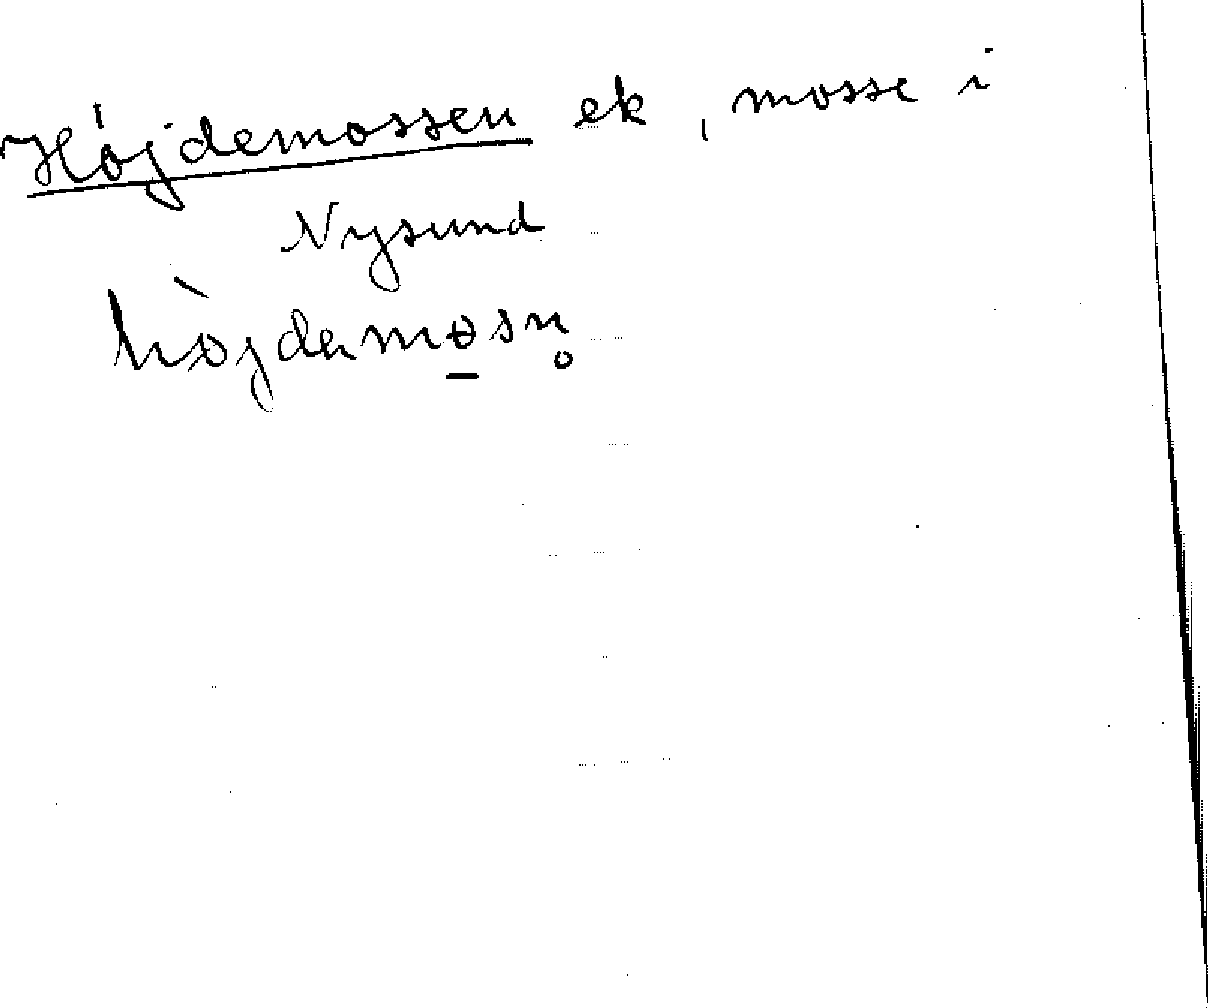 Höjdemossen ek, mosse i
Nysund
hòjdamo̲sn̥